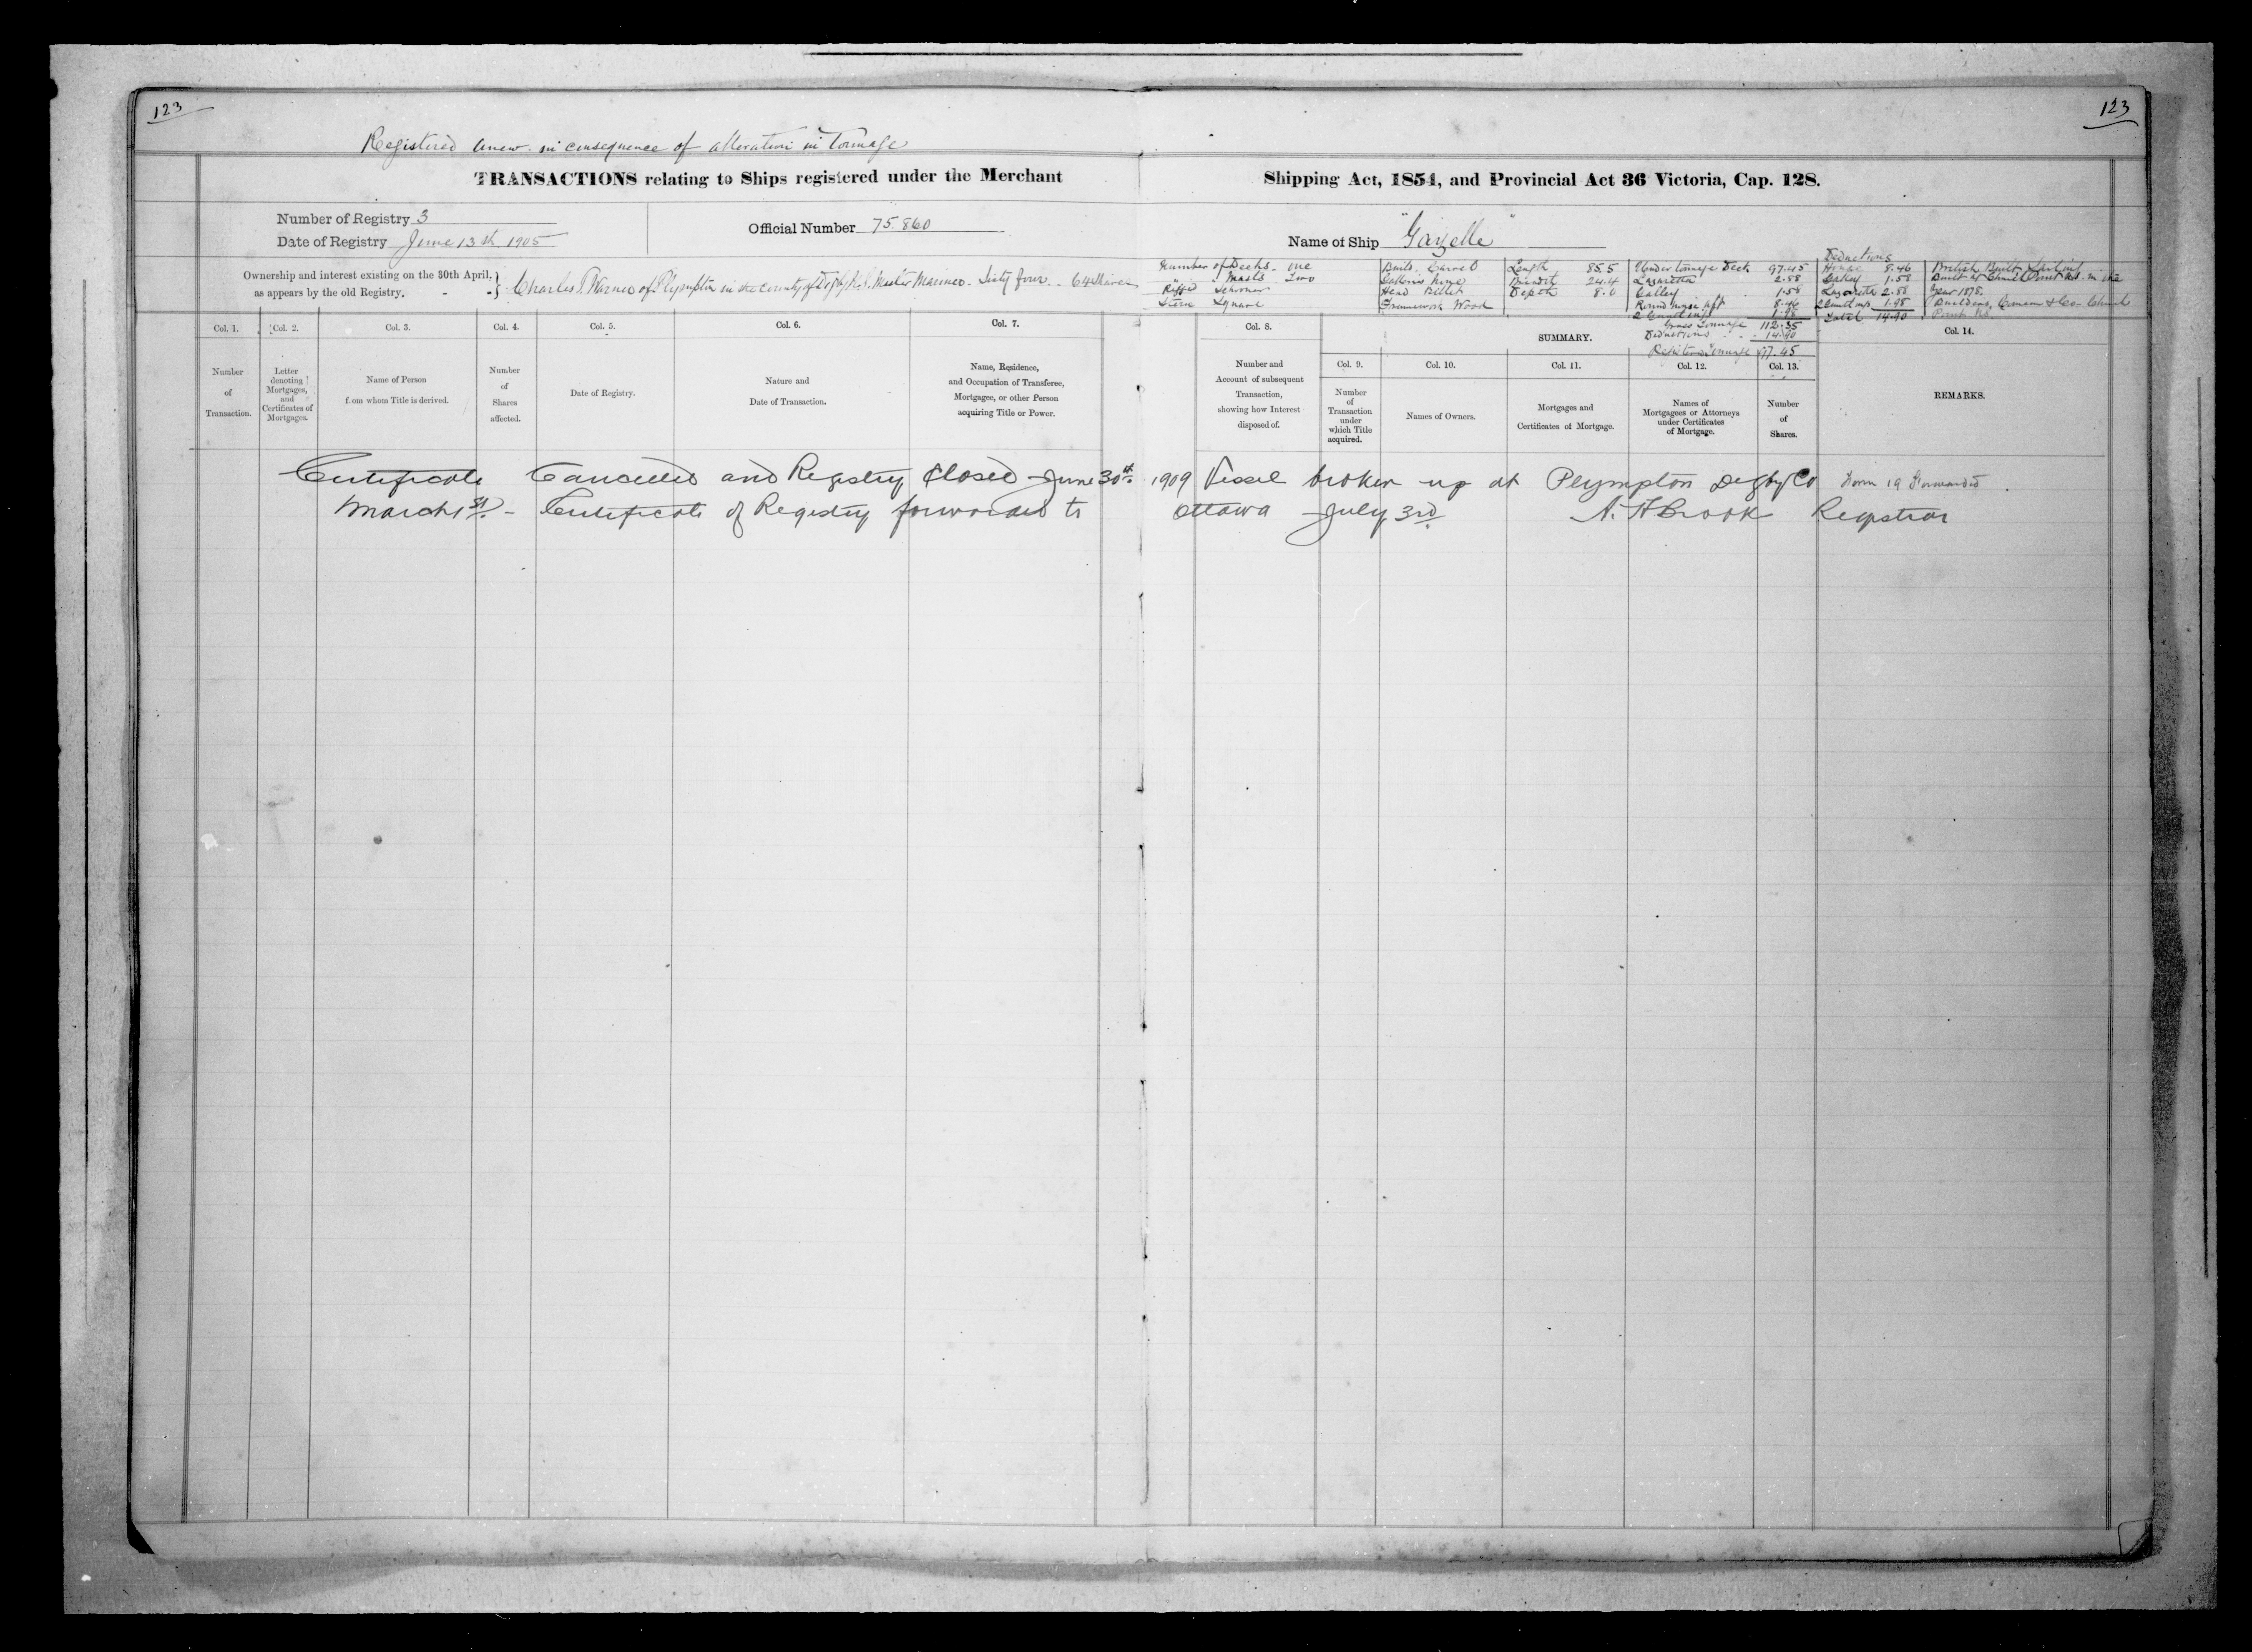 123
123
Registered anew in consequence of alteration in Tonnage
TRANSACTIONS relating to Ships registered under the Merchant Shipping Act, 1854, and Provincial Act 36 Victoria, Cap. 128.
Number of Registry 3
Date of Registry June 13th 1905
Official Number 75.860
Name of Ship "Gazelle"
Ownership and interest existing on the 30th April,
as appears by the old Registry. - -
Charles Warner of Plympton in the county of Digby N.S. Master Mariner - Sixty four - 64 Shares
Number of Decks - one
Masts - Two
Rigged Schooner
Stern Square
Build Carvel
Galleries None
Head Billet
Framework Wood
Length 85.5
Breadth 24.4
Depth 8.0
Under tonnage Deck 97.45
Lazarette 2.88
Galley 1.58
Round house aft 8.46
2 1.98
Gross Tonnage 112.35
Deductions - - 14.90
Registered Tonnage 97.45
Deductions
House 8.46
Galley 1.58
Lazarette 2.88
1.98
Total 14.90
British Built Sailing
Built at Church Point N.S. in the
Year 1878.
Builders, & Co - Church
Point N.S.
Col. 1.
Number
of
Transaction.
Col. 2.
Letter
denoting
Mortgages,
and
Certificates of
Mortgages.
Col. 3.
Name of Person
from whom Title is derived.
Col. 4.
Number
of
Shares
affected.
Col. 5.
Date of Registry.
Col. 6.
Nature and
Date of Transaction.
Col. 7.
Name, Residence,
and Occupation of Transferee,
Mortgagee, or other Person
acquiring Title or Power.
Col. 8.
Number and
Account of subsequent
Transaction,
showing how Interest
disposed of.
SUMMARY.
Col. 9.
Number
of
Transaction
under
which Title
acquired.
Col. 10.
Names of Owners.
Col. 11.
Mortgages and
Certificates of Mortgage.
Col. 12.
Names of
Mortgagees or Attorneys
under Certificates
of Mortgage.
Col. 13.
Number
of
Shares.
Col. 14.
REMARKS.
Certificate Cancelled and Registry Closed June 30th 1909 Vessel broken up at Plympton Digby Co Form 19 Forwarded
March 1st - Certificate of Registry forwarded to Ottawa July 3rd A. H Brook Registrar